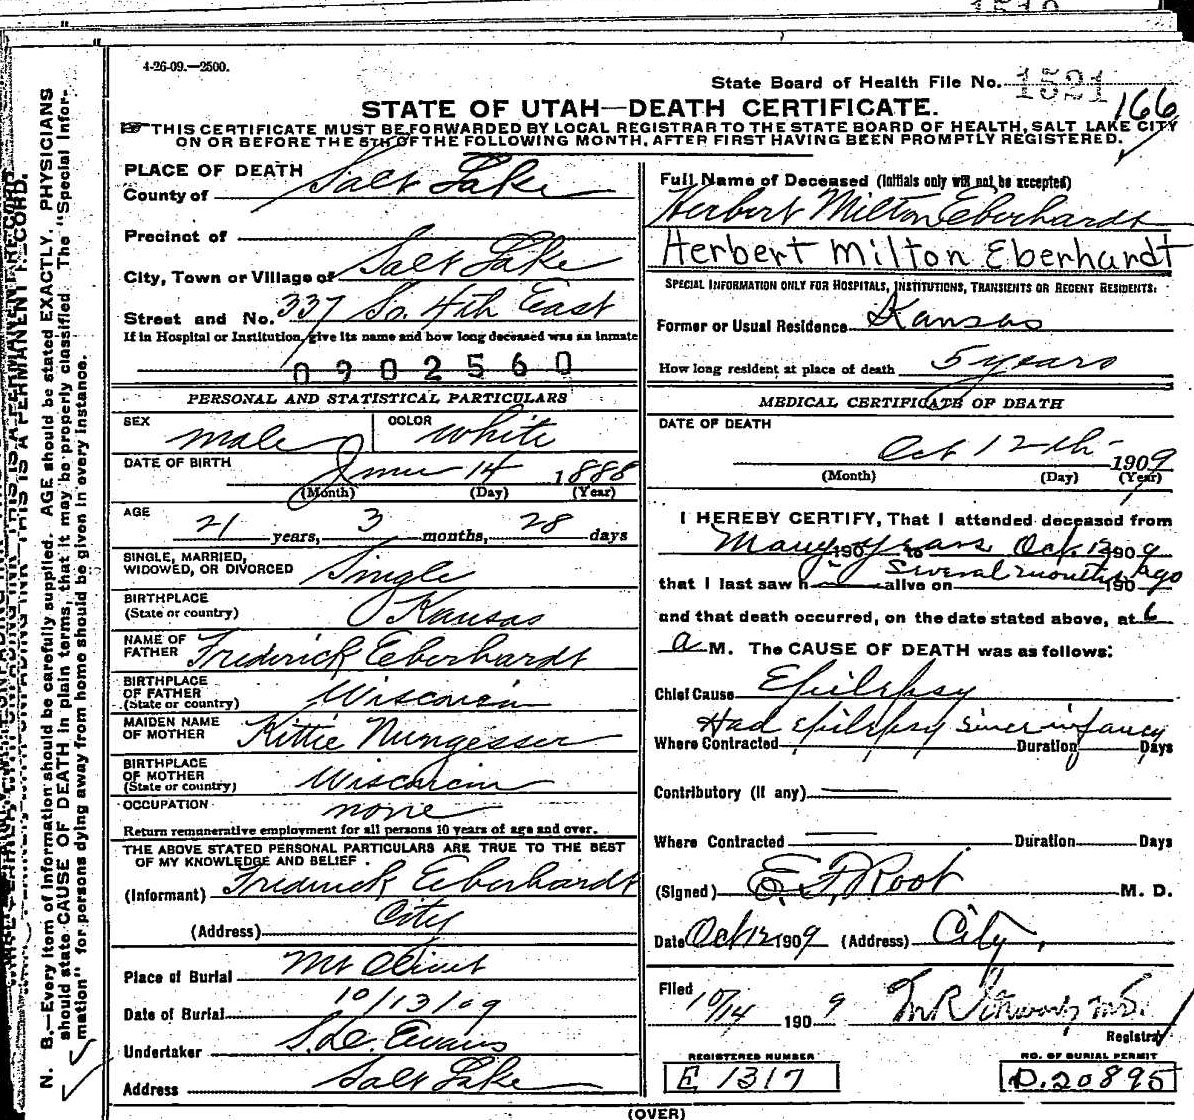 4-26-09.—2500.
State Board of Health File No. 1521
166
STATE OF UTAH—DEATH CERTIFICATE.
THIS CERTIFICATE MUST BE FORWARDED BY LOCAL REGISTRAR TO THE STATE BOARD OF HEALTH, SALT LAKE CITY
ON OR BEFORE THE 5TH OF THE FOLLOWING MONTH, AFTER FIRST HAVING BEEN PROMPTLY REGISTERED.
PLACE OF DEATH
County of Salt Lake
Precinct of
City, Town or Village of Salt Lake
Street and No. 337 So. 4th East
If in Hospital or Institution, give its name and how long deceased was an inmate
0902560
PERSONAL AND STATISTICAL PARTICULARS
SEX male COLOR White
DATE OF BIRTH June 14 1888
(Month) (Day) (Year)
AGE 21 years, 3 months, 28 days
SINGLE, MARRIED,
WIDOWED, OR DIVORCED Single
BIRTHPLACE
(State or country) Kansas
NAME OF
FATHER Frederick Eberhardt
BIRTHPLACE
OF FATHER
(State or country) Wisconsin
MAIDEN NAME
OF MOTHER Kittie Nungesser
BIRTHPLACE
OF MOTHER
(State or country) Wisconsin
OCCUPATION none
Return remunerative employment for all persons 10 years of age and over.
THE ABOVE STATED PERSONAL PARTICULARS ARE TRUE TO THE BEST
OF MY KNOWLEDGE AND BELIEF.
(Informant) Frederick Eberhardt
(Address) City
Place of Burial Mt Olivet
Date of Burial 10/13/09
Undertaker S. D. Evans
Address Salt Lake
Full Name of Deceased (Initials only will not be accepted)
Herbert Milton Eberhardt
Herbert Milton Eberhardt
SPECIAL INFORMATION ONLY FOR HOSPITALS, INSTITUTIONS, TRANSIENTS OR RECENT RESIDENTS:
Former or Usual Residence Kansas
How long resident at place of death 5 years
MEDICAL CERTIFICATE OF DEATH
DATE OF DEATH
Oct 12th 1909
(Month) (Day) (Year)
I HEREBY CERTIFY, That I attended deceased from
Many years 190 to Oct. 12 1909
that I last saw h alive on Several months ago 190
and that death occurred, on the date stated above, at 6
a M. The CAUSE OF DEATH was as follows:
Chief Cause Epilepsy
Had epilepsy since infancy
Where Contracted Duration Days
Contributory (if any)
Where Contracted Duration Days
(Signed) E. F. Root M. D.
Date Oct 12 1909 (Address) City.
Filed 10/14 1909
Registrar
REGISTERED NUMBER
E 1317
NO. OF BURIAL PERMIT
D. 20895
(OVER)
N. B.—Every item of information should be carefully supplied. AGE should be stated EXACTLY. PHYSICIANS
should state CAUSE OF DEATH in plain terms, that it may be properly classified. The "Special Infor-
mation" for persons dying away from home should be given in every instance.